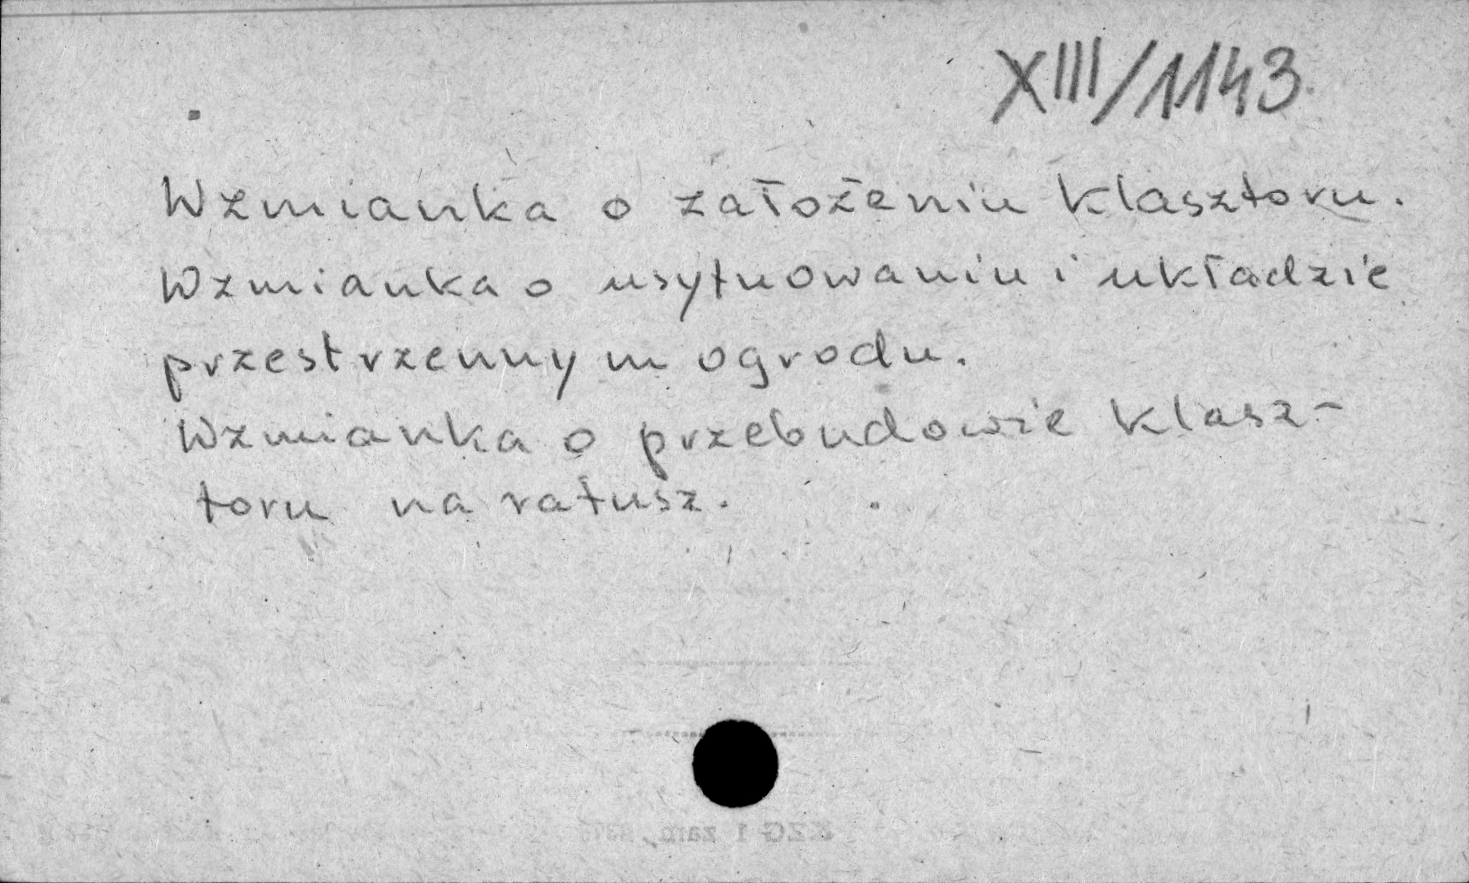 XIII/1143.
Wzmianka o założeniu klasztoru.
Wzmianka o usytuowaniu i układzie
przestrzennym ogrodu.
Wzmianka o przebudowie klasz-
toru na ratusz.